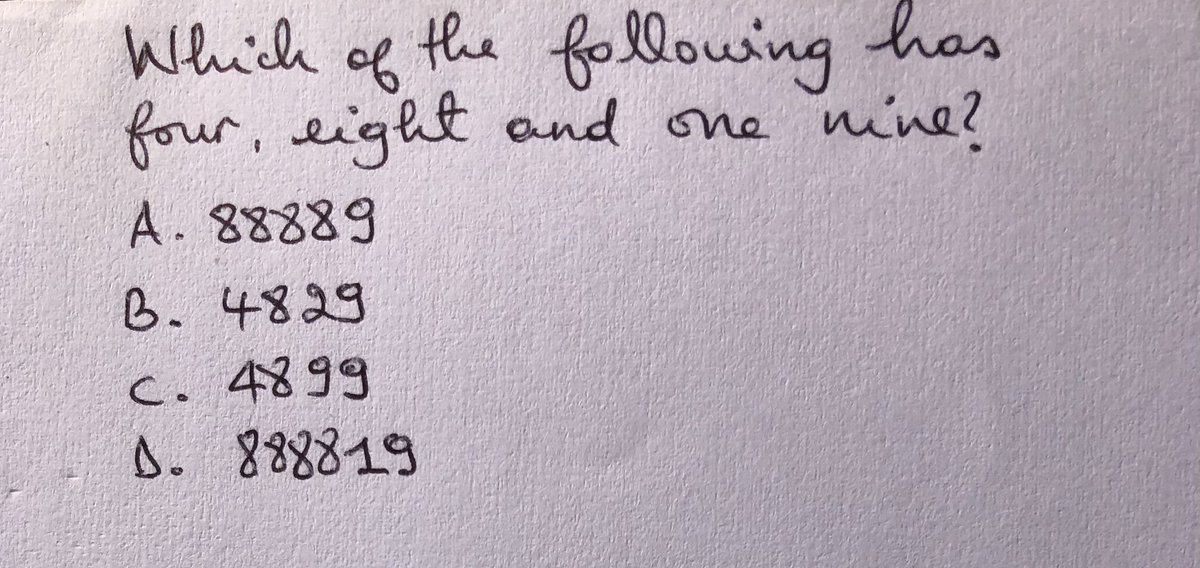 Which of the following has
four, eight and one nine?
A. 88889
B. 4829
C. 4899
D. 888819